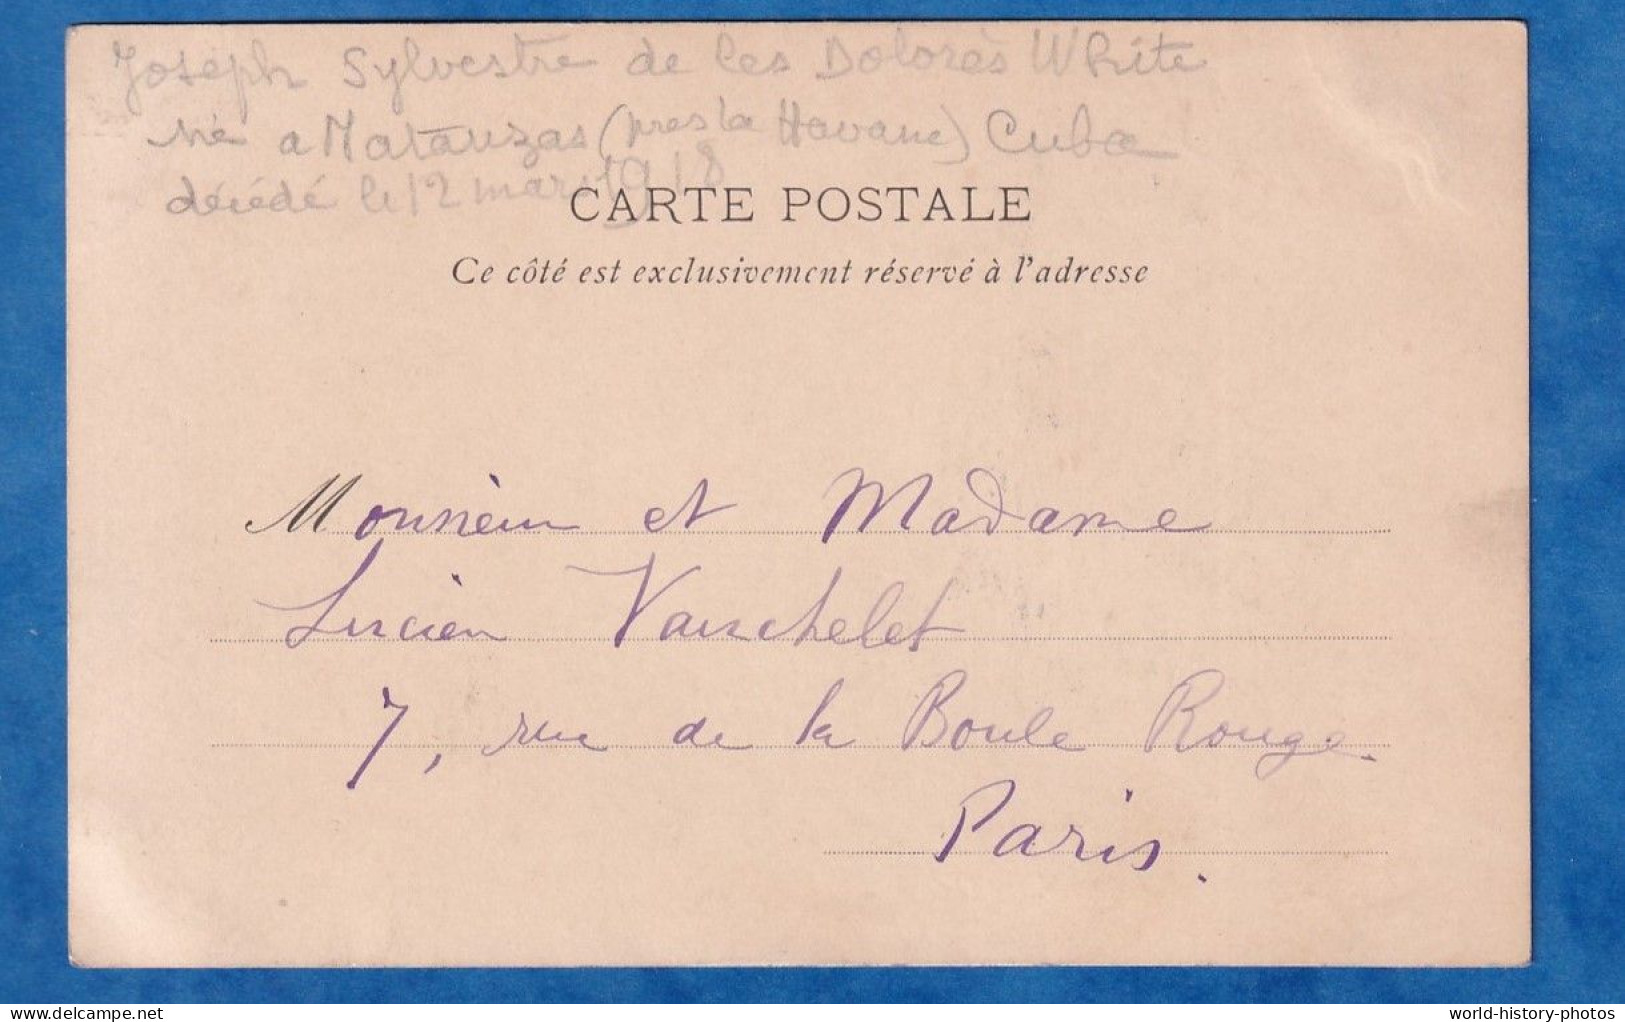 Joseph Sylvestre de les Dolorès White
né a Matanzas (pres la Havane) Cuba
décédé le 12 mars 1918
CARTE POSTALE
Ce côté est exclusivement réservé à l'adresse
Monsieur et Madame
Lucien Vauchelet
7, rue de la Boule Rouge.
Paris.
delcampe.net
world-history-photos